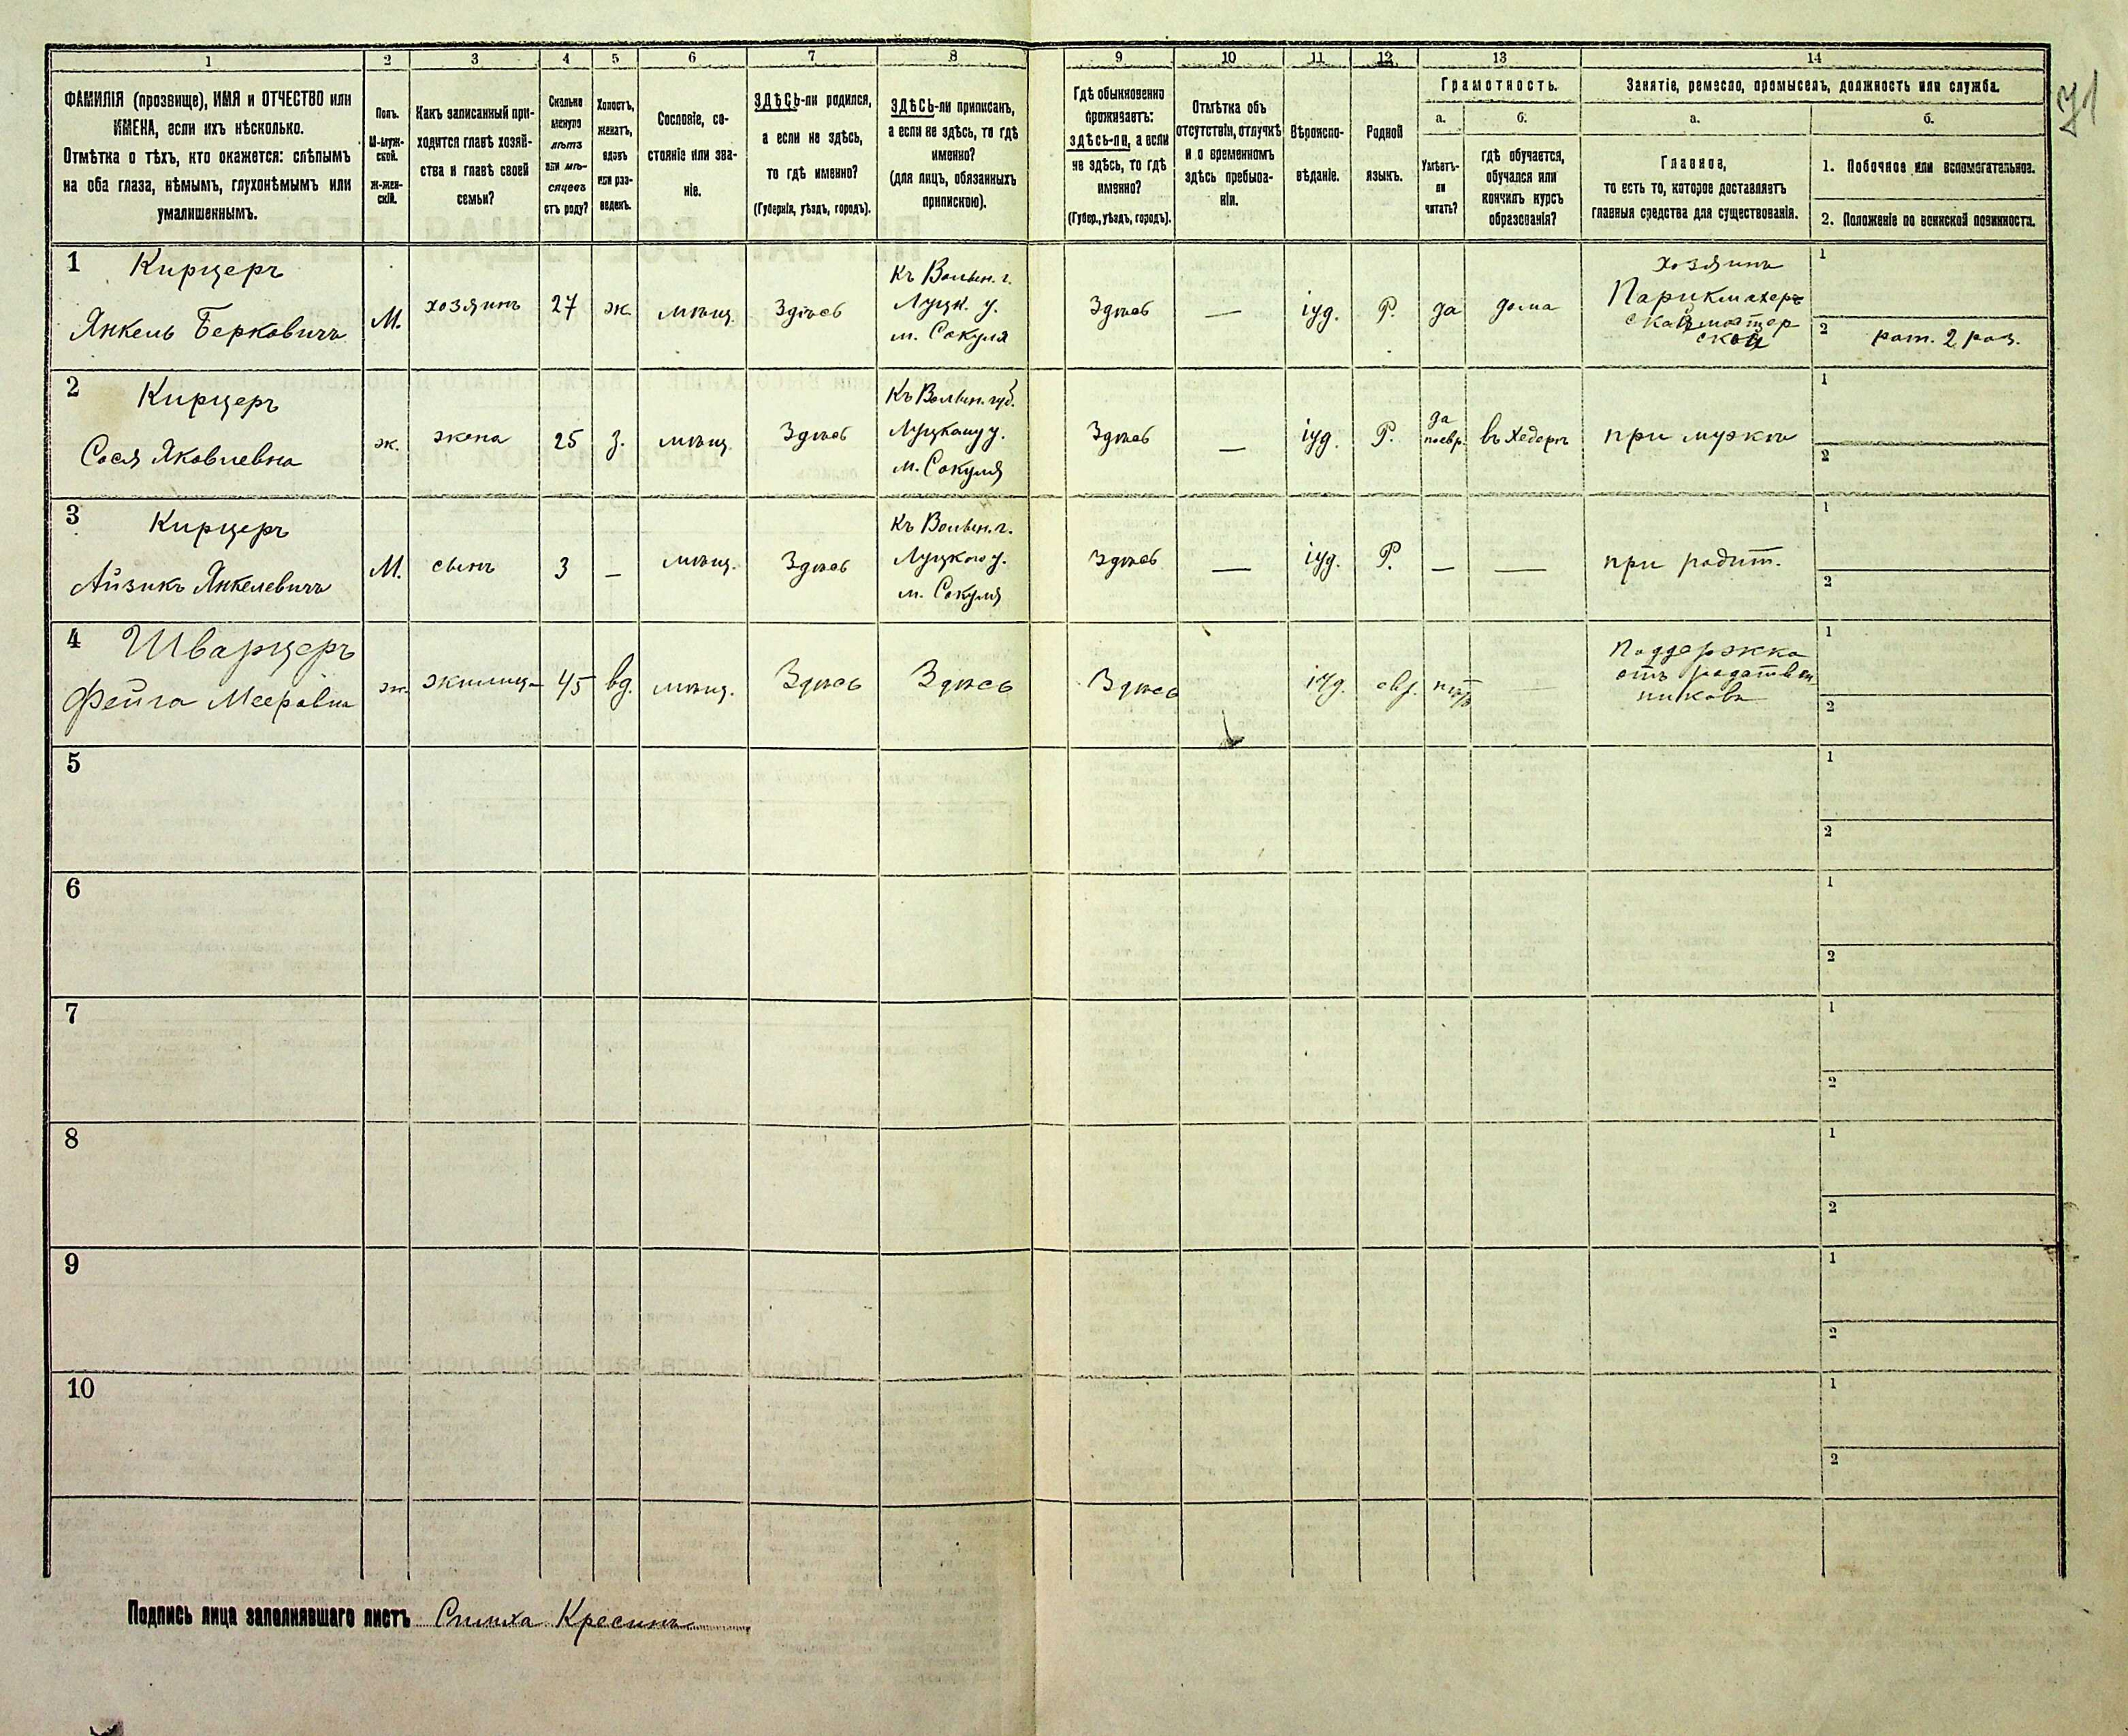 71
1 2 3 4 5 6 7 8 9 10 11 12 13 14
ФАМИЛІЯ (прозвище), ИМЯ и ОТЧЕСТВО или
ИМЕНА, если ихъ нѣсколько.
Отмѣтка о тѣхъ, кто окажется: слѣпымъ
на оба глаза, нѣмымъ, глухонѣмымъ или
умалишеннымъ.
Полъ.
М-муж-
ской.
Ж-жен-
скій.
Какъ записанный при-
ходится главѣ хозяй-
ства и главѣ своей
семьи?
Сколько
минуло
лѣтъ
или мѣ-
сяцевъ
отъ роду?
Холостъ,
женатъ,
вдовъ
или раз-
веденъ.
Сословіе, со-
стояніе или зва-
ніе.
ЗДѢСЬ-ли родился,
а если не здѣсь,
то гдѣ именно?
(Губернія, уѣздъ, городъ).
ЗДѢСЬ-ли приписанъ,
а если не здѣсь, то гдѣ
именно?
(для лицъ, обязанныхъ
припискою).
Гдѣ обыкновенно
проживаетъ:
здѣсь-ли, а если
не здѣсь, то гдѣ
именно?
(Губер., уѣздъ, городъ).
Отмѣтка объ
отсутствіи, отлучкѣ
и о временномъ
здѣсь пребыва-
ніи.
Вѣроиспо-
вѣданіе.
Родной
языкъ.
Грамотность.
а.
Умѣетъ-
ли
читать?
б.
гдѣ обучается,
обучался или
кончилъ курсъ
образованія?
Занятіе, ремесло, промыселъ, должность или служба.
а.
Главное,
то есть то, которое доставляетъ
главныя средства для существованія.
б.
1. Побочное или вспомогательное.
2. Положеніе по воинской повинности.
1 Кирцеръ
Янкель Берковичъ
М.
хозяинъ
27
ж.
мѣщ.
Здѣсь
къ Волын. г.
Луцк. у.
м. Сокуля
Здѣсь
—
іуд.
Р.
да
дома
хозяинъ
Парикмахеръ
1
2 рат. 2 раз.
2 Кирцеръ
Сося Яковлевна
ж.
жена
25
з.
мѣщ.
Здѣсь
Къ Волын. губ.
Луцкому у.
м. Сокуля
Здѣсь
—
іуд.
Р.
да
поевр.
въ хедерѣ
при мужѣ
1
2
3 Кирцеръ
Айзикъ Янкелевичъ
М.
сынъ
3
—
мѣщ.
Здѣсь
къ Волын. г.
Луцкому у.
м. Сокуля
Здѣсь
—
іуд.
Р.
—
—
при родит.
1
2
4 Шварцеръ
Фейга Мееровна
ж.
жилица
45
вд.
мѣщ.
Здѣсь
Здѣсь
Здѣсь
іуд.
евр.
нѣтъ
—
Поддержка
отъ родствен
никовъ
1
2
5
1
2
6
1
2
7
1
2
8
1
2
9
1
2
10
1
2
Подпись лица заполнявшаго листъ Кресинъ